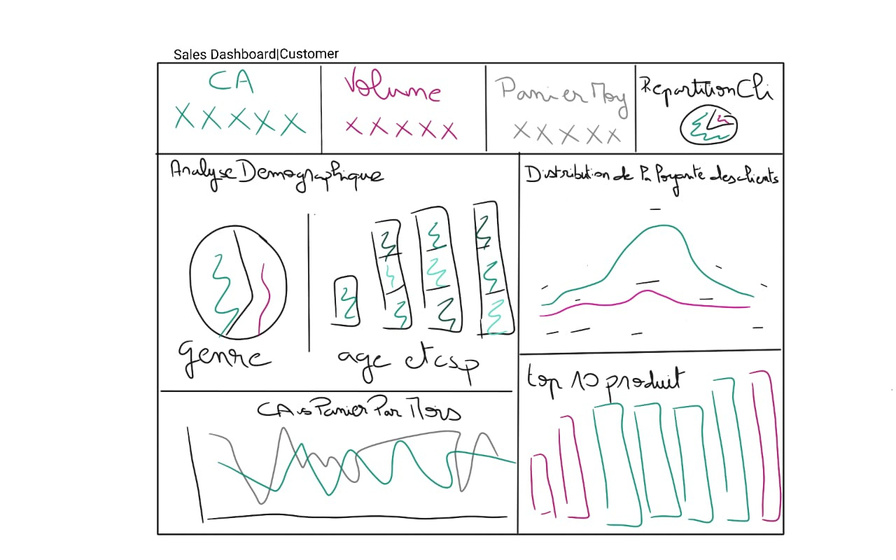 Sales Dashboard|Customer
CA
XXXXX
Volume
XXXXX
Panier Moy
XXXXX
Repartition Cli
Analyse Demographique
Genre
age et csp
Distribution de la Loyauté des clients
CA vs Panier Par Mois
top 10 produit